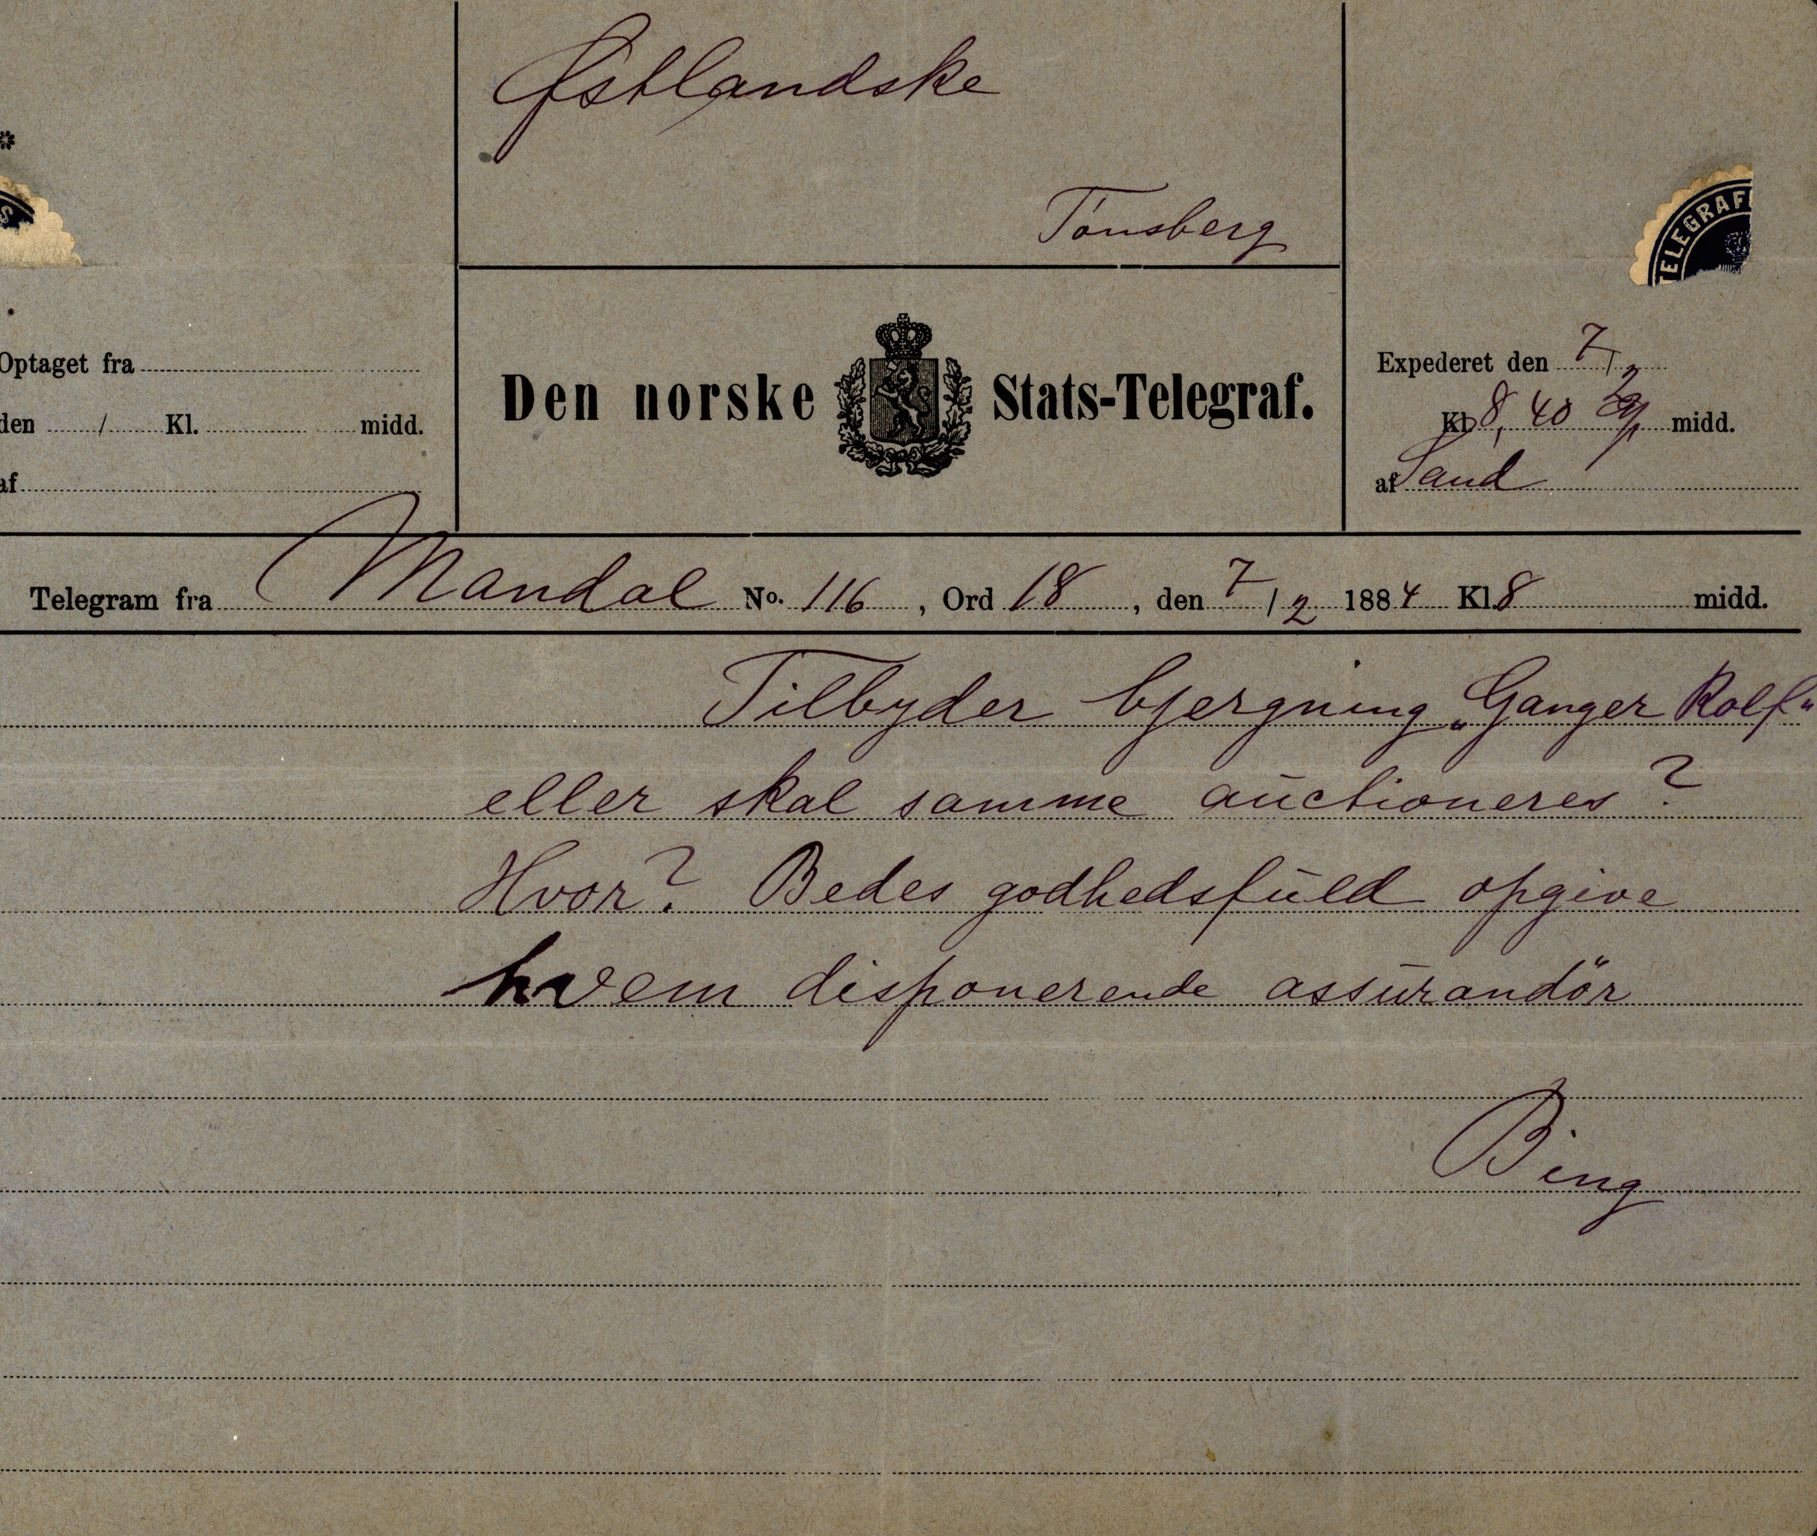 Østlandske
Tønsberg
TELEGRAF
S
Optaget fra
den / Kl. midd.
af
Den norske Stats-Telegraf.
Expederet den 7/2
Kl. 8,40 midd.
af Sand
Telegram fra Mandal No. 116, Ord 18, den 7/2 1884 Kl. 8 midd.
Tilbyder bjergning „Ganger Rolf“
eller skal samme auctioneres?
Hvor? Bedes godhedsfuld opgive
hvem disponerende assurandör
Bing